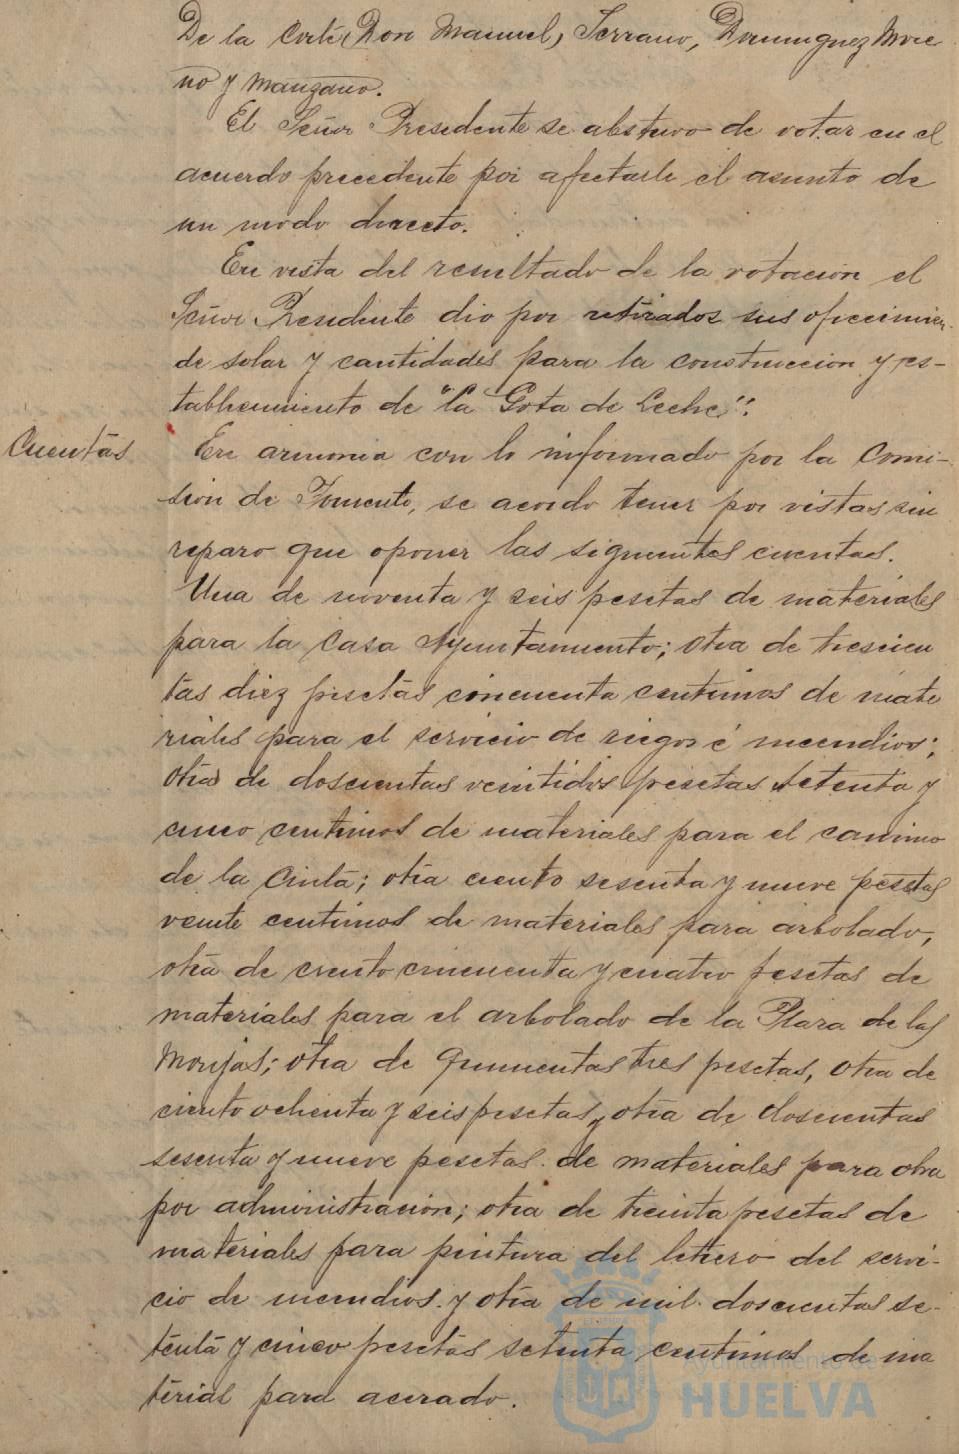 De la Corte (Don Manuel) Serrano, Dominguez More
no y Manzano.
El Señor Presidente se abstuvo de votar en el
acuerdo precedente por afectarle el asunto de
un modo directo.
En vista del resultado de la votacion el
Señor Presidente dio por retirados sus ofrecimien
de solar y cantidades para la construccion y es-
tablecimiento de "La Gota de Leche".
Cuentas
En armonia con lo informado por la Comi-
sion de Fomento, se acordo tener por vistas sin
reparo que oponer las siguientes cuentas.
Una de noventa y seis pesetas de materiales
para la Casa Ayuntamiento; otra de trescien
tas diez pesetas cincuenta centimos de mate
riales para el servicio de riegos é incendios;
otra de doscientas veintidos pesetas setenta y
cinco centimos de materiales para el camino
de la Cinta; otra ciento sesenta y nueve pesetas
veinte centimos de materiales para arbolado,
otra de ciento cincuenta y cuatro pesetas de
materiales para el arbolado de la Plaza de las
Monjas; otra de quinientas tres pesetas, otra de
ciento ochenta y seis pesetas y otra de doscientas
sesenta y nueve pesetas de materiales para obra
por administracion; otra de treinta pesetas de
materiales para pintura del letrero del servi-
cio de incendios y otra de mil doscientas se-
tenta y cinco pesetas setenta centimos de ma
terial para acerado.
Ayuntamiento de
HUELVA